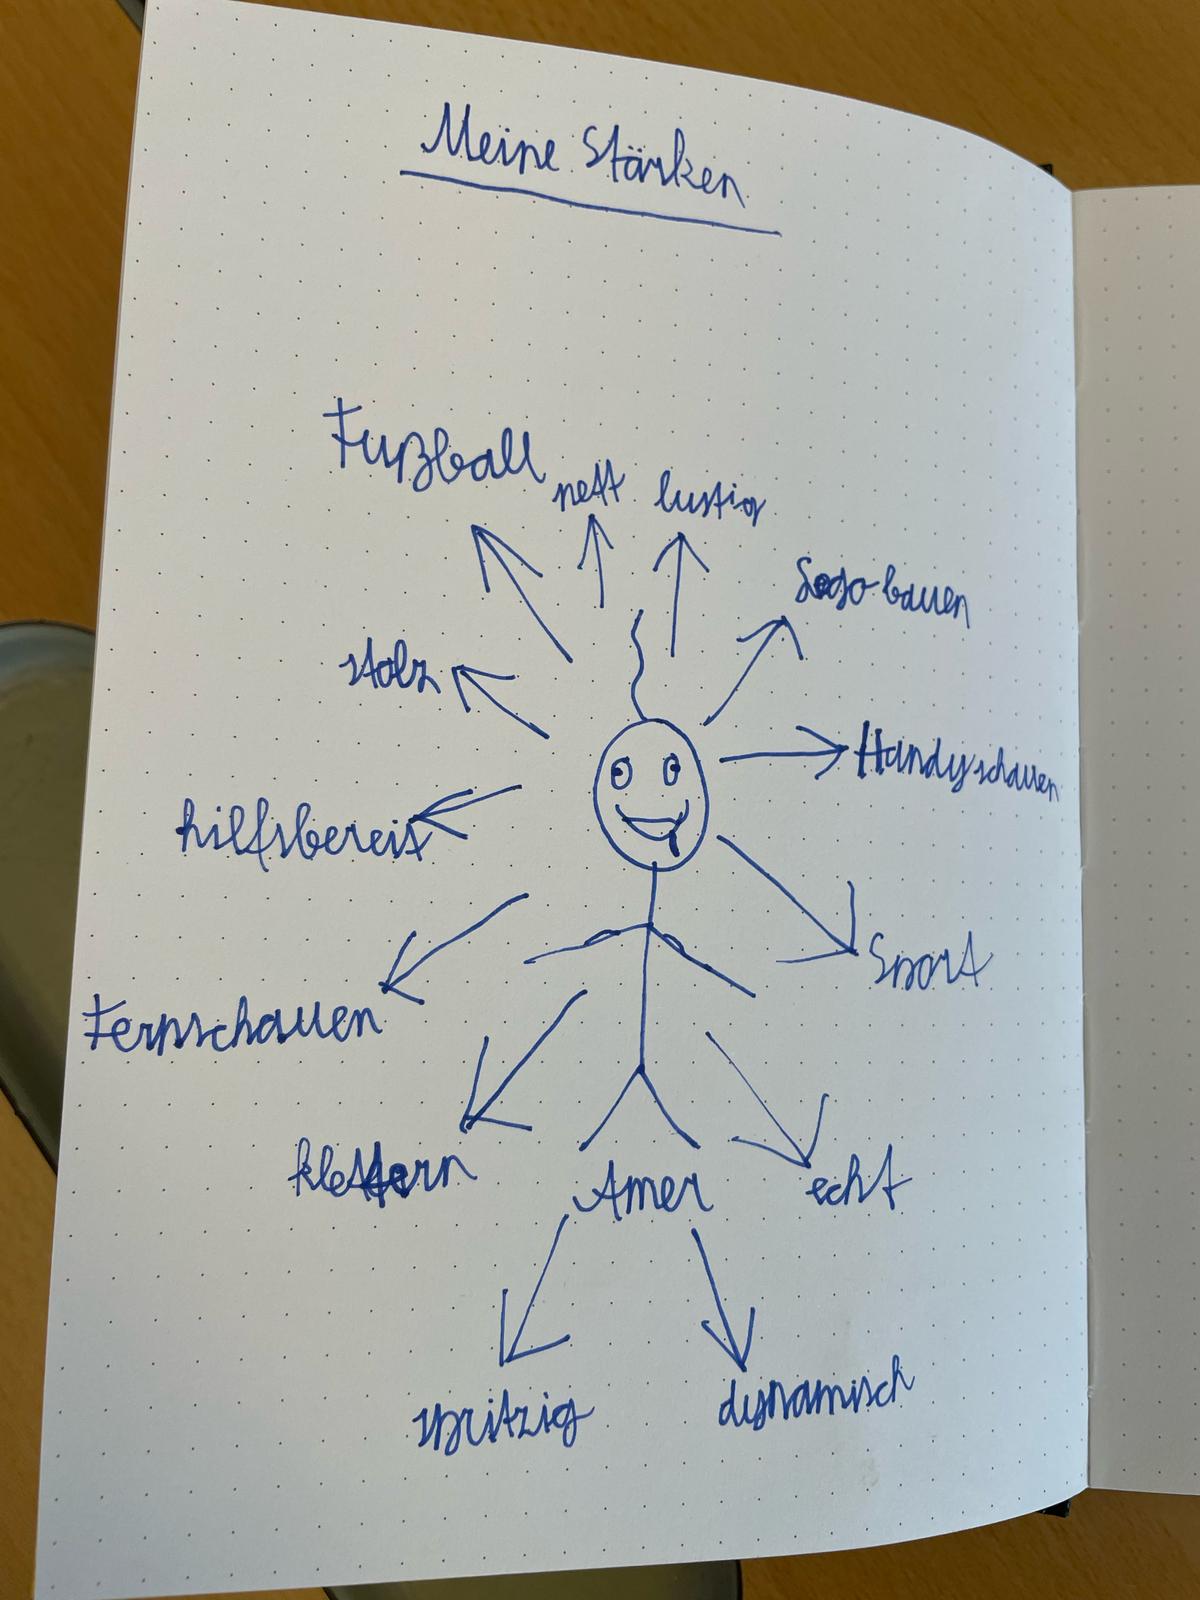 Meine Stärken
Fußball
nett
lustig
Lego bauen
stolz
Handyschauen
hilfsbereit
Sport
Fernschauen
klettern
Amer
echt
spritzig
dynamisch